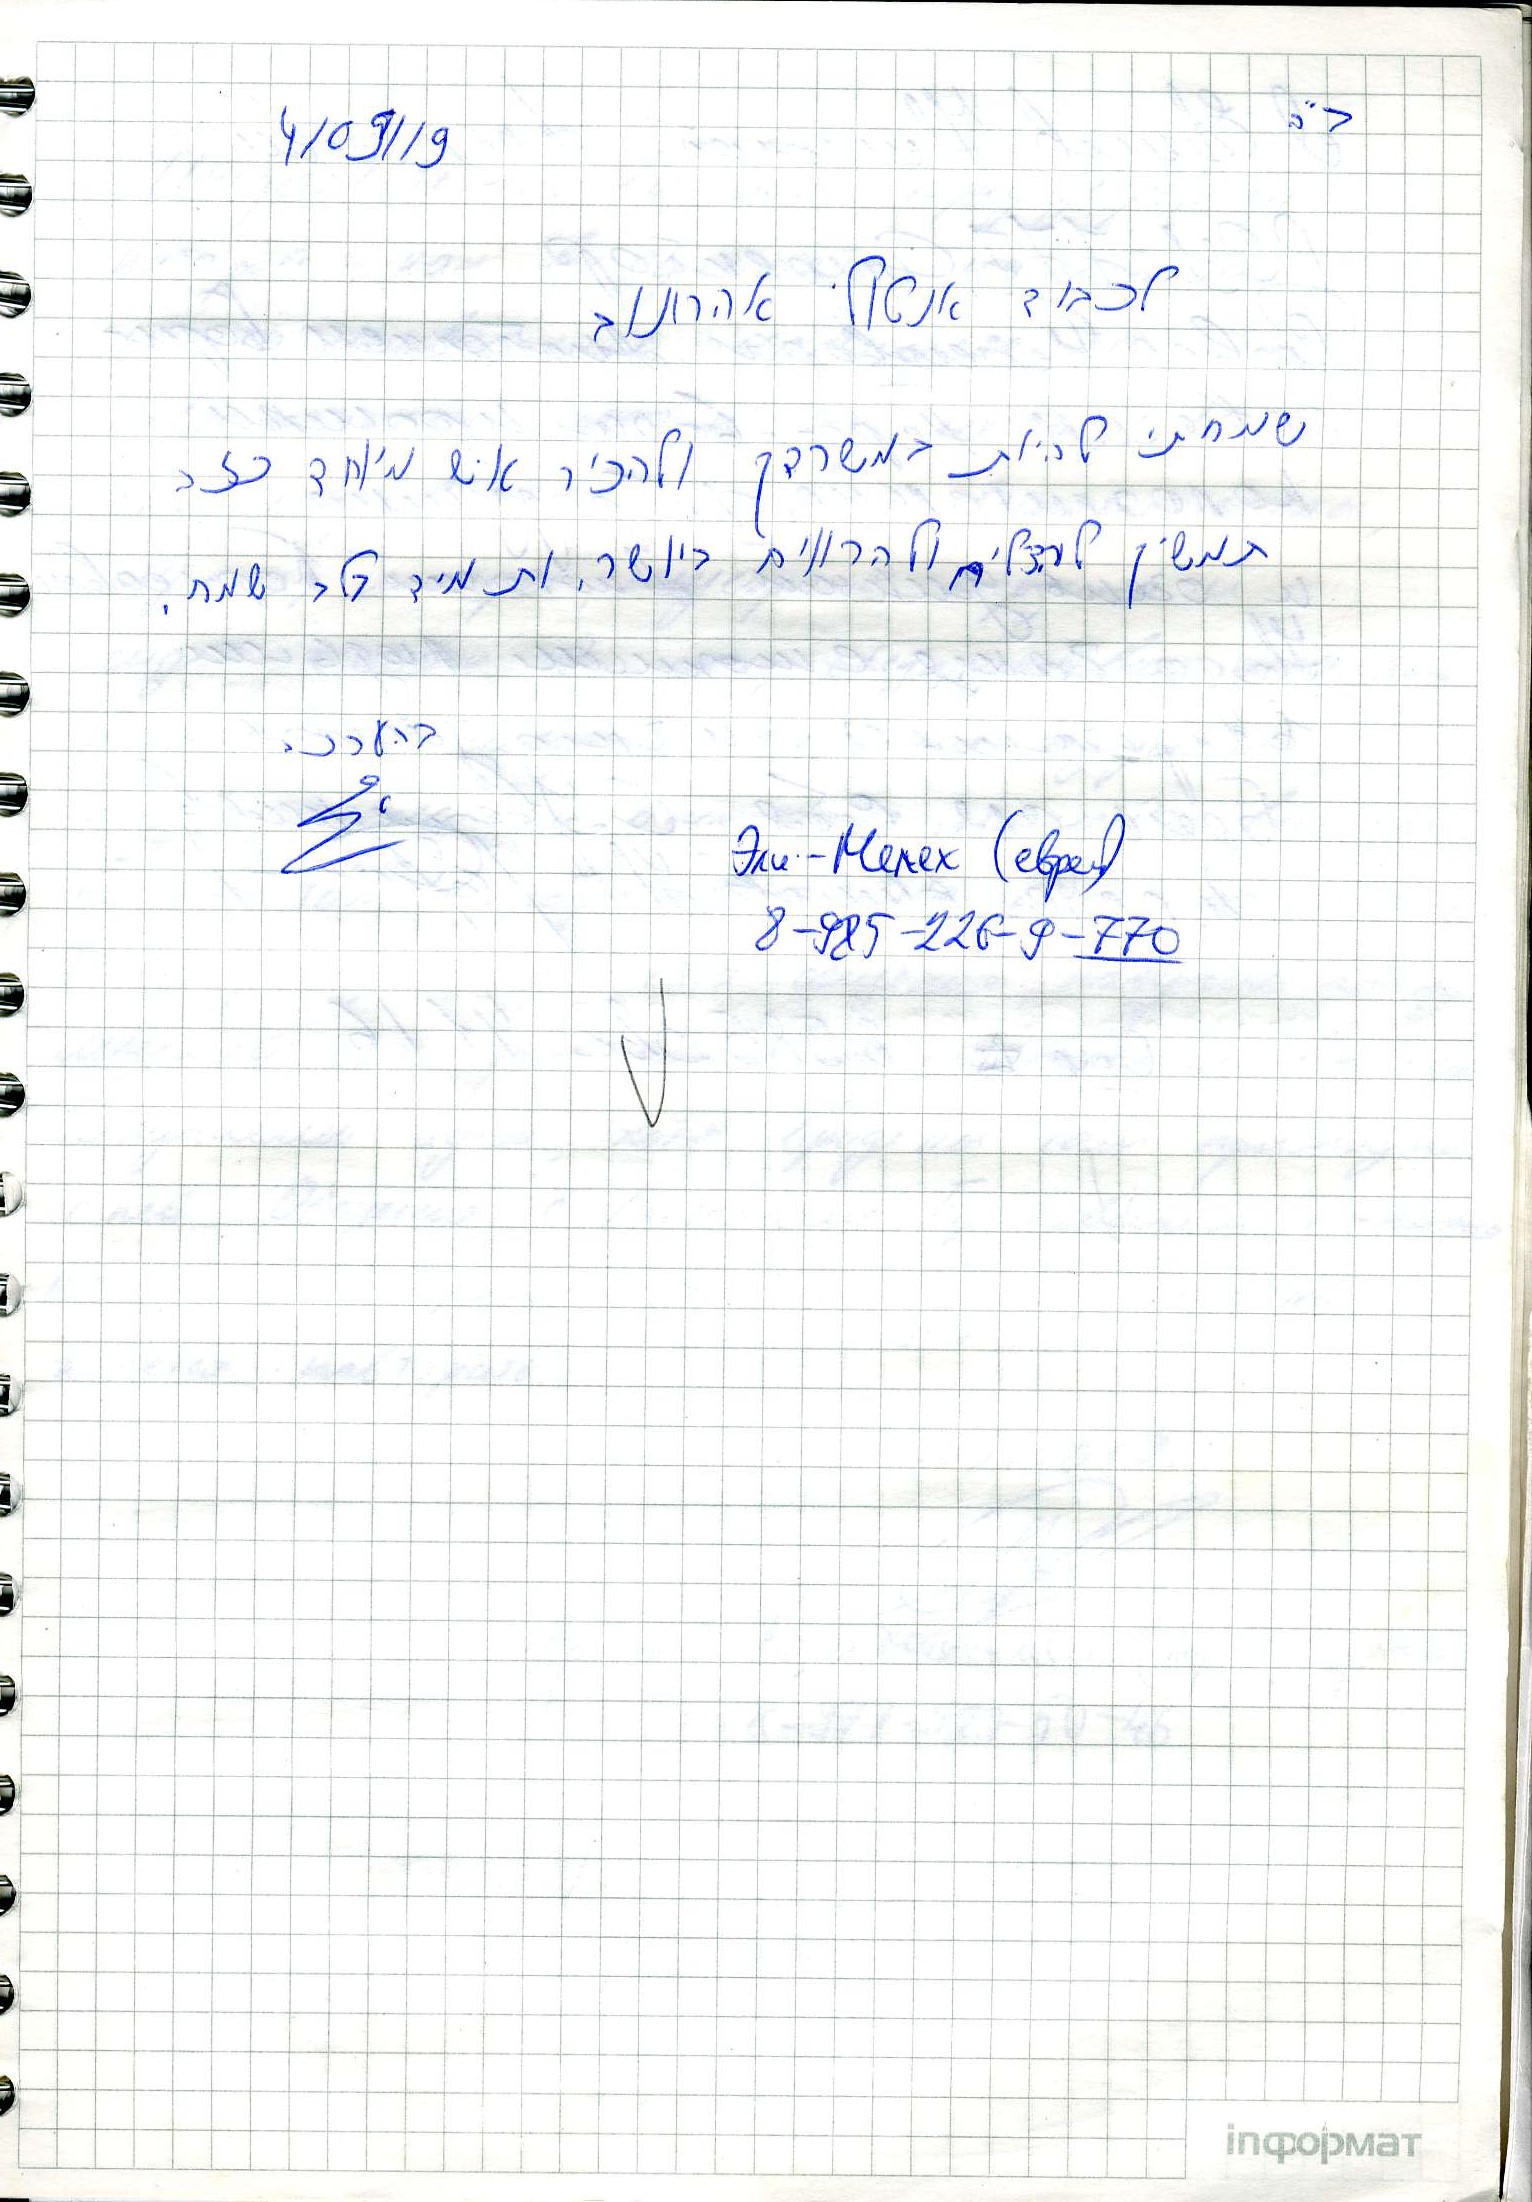 ב"ה
4/09/19
לכבוד אנטולי אהרונוב
שמחתי להיות במשרדך ולהכיר איש מיוחד כזה
תמשיך להצליח ולהרוויח ביושר, ותמיד בלב שמח.
בהערכה
Эли-Мелех (еврей)
8-985-226-9-770
inформат